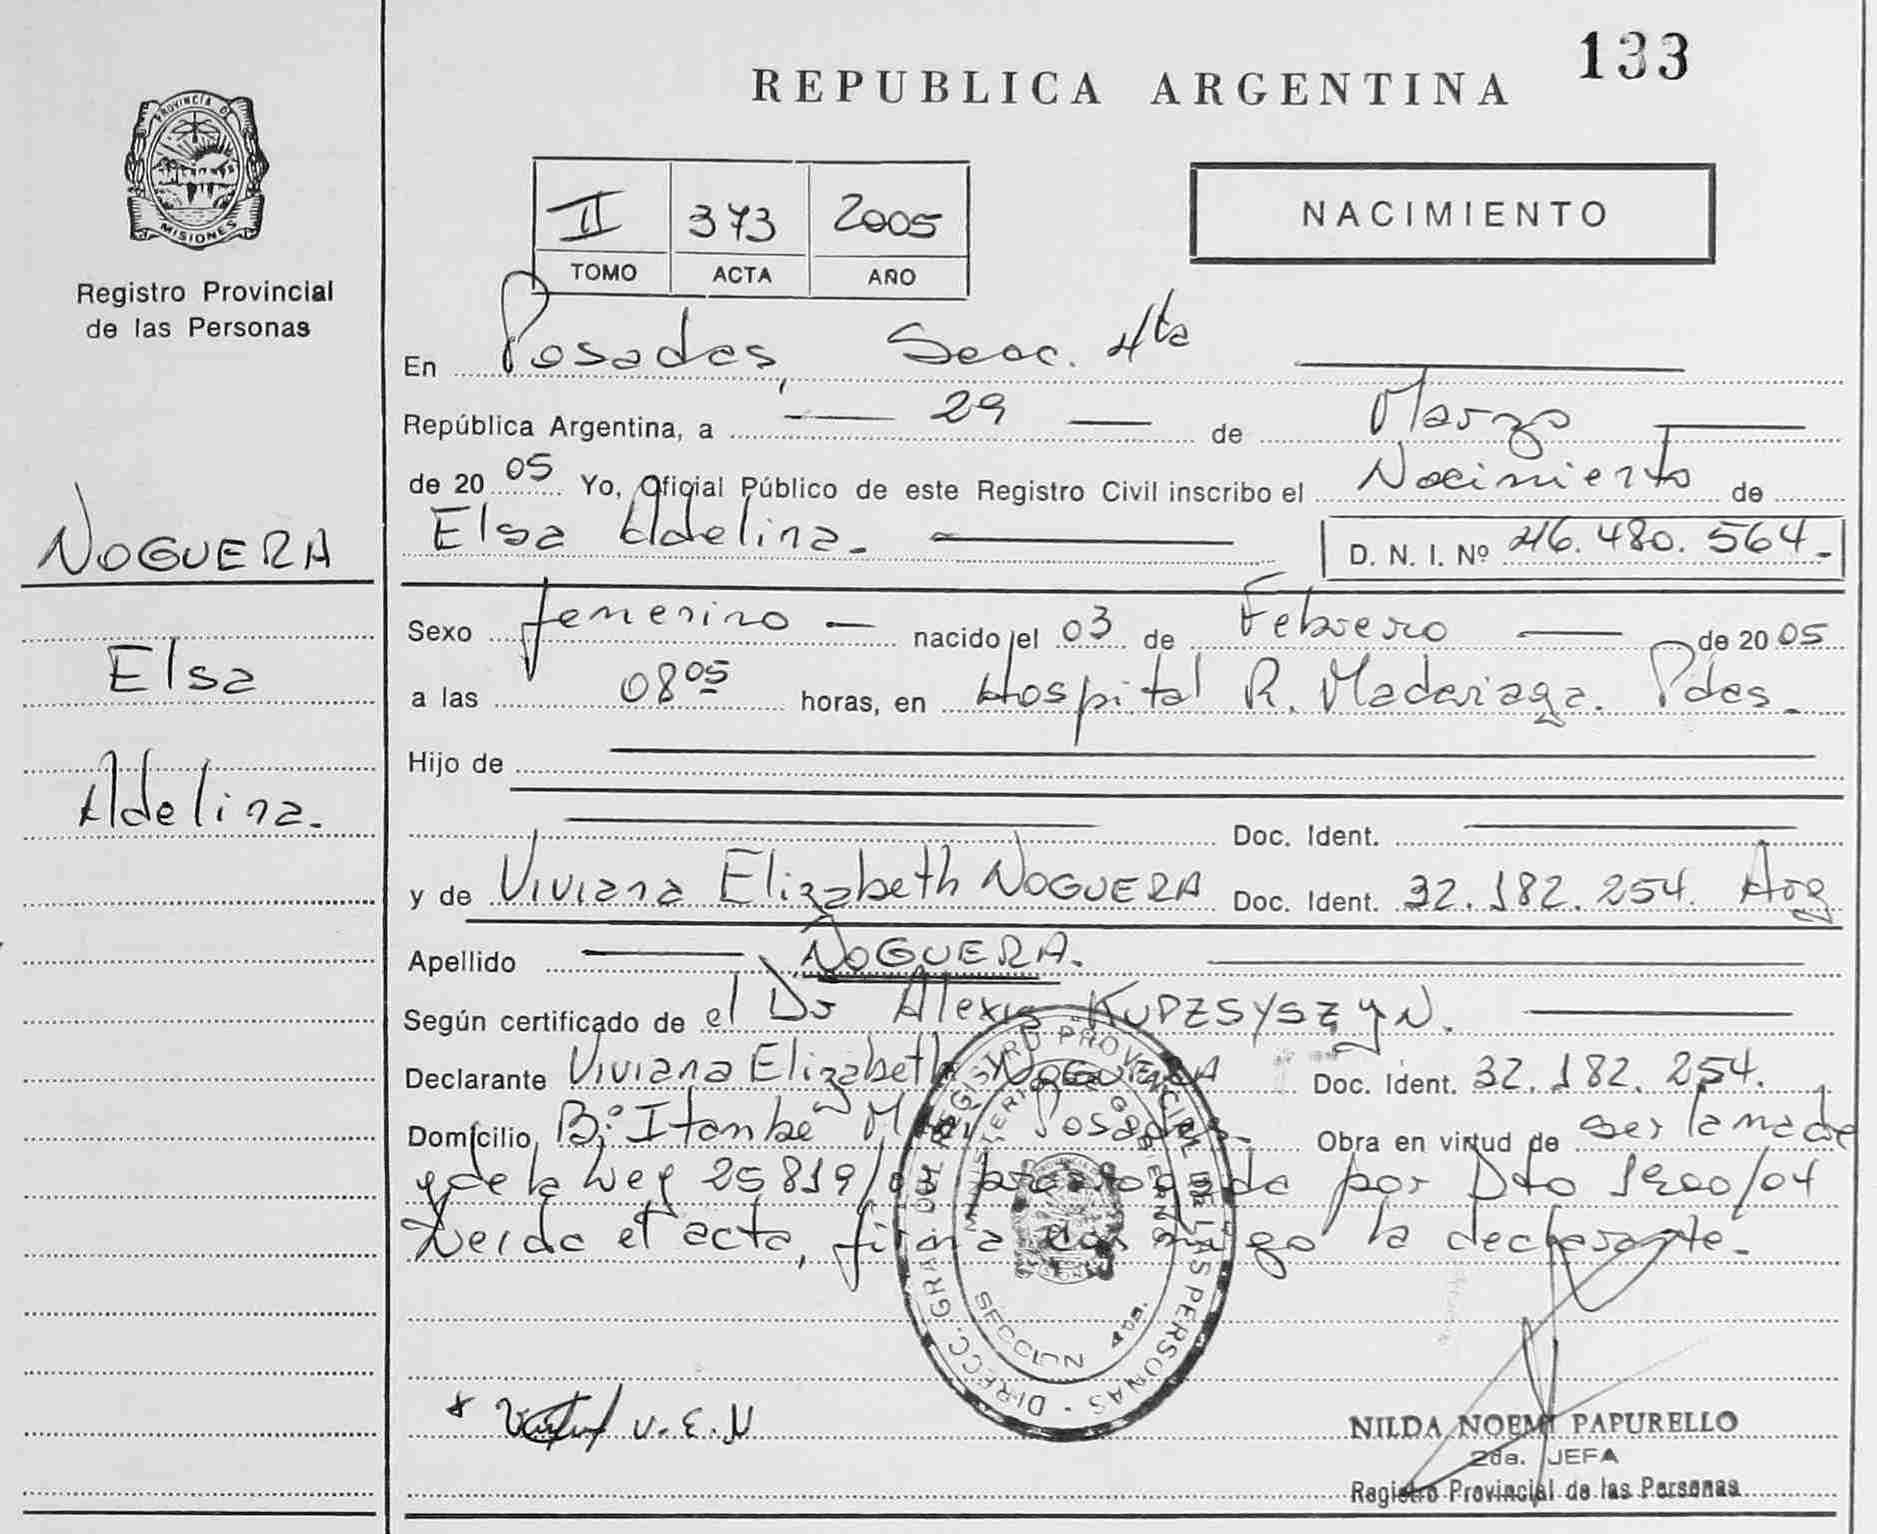 133
REPUBLICA ARGENTINA
PROVINCIA DE
MISIONES
Registro Provincial
de las Personas
II 373 2005
TOMO ACTA AÑO
NACIMIENTO
En Posadas, Secc. 4ta
República Argentina, a 29 de Marzo
de 20 05 Yo, Oficial Público de este Registro Civil inscribo el Nacimiento de
Elsa Adelina. D. N. I. Nº 46.480.564.-
NOGUERA
Elsa
Adelina.
Sexo femenino nacido el 03 de Febrero de 20 05
a las 08 05 horas, en Hospital R. Madariaga. Pdas.
Hijo de
Doc. Ident.
y de Viviana Elizabeth NOGUERA Doc. Ident. 32.182.254. Arg
Apellido NOGUERA.
Según certificado de el Dr Alexis
Declarante Viviana Elizabeth NOGUERA Doc. Ident. 32.182.254.
Domicilio, Posadas.- Obra en virtud de ser la madre
y de la Ley 25819/03 prorrogada por Dto 1900/04
Leida el acta, firma conmigo la declarante.-
DIRECC. GRAL. DEL REGISTRO PROVINCIAL DE LAS PERSONAS
MINISTERIO DE GOBIERNO
SECCION 4da.
V.E.N
NILDA NOEMI PAPURELLO
2da. JEFA
Registro Provincial de las Personas